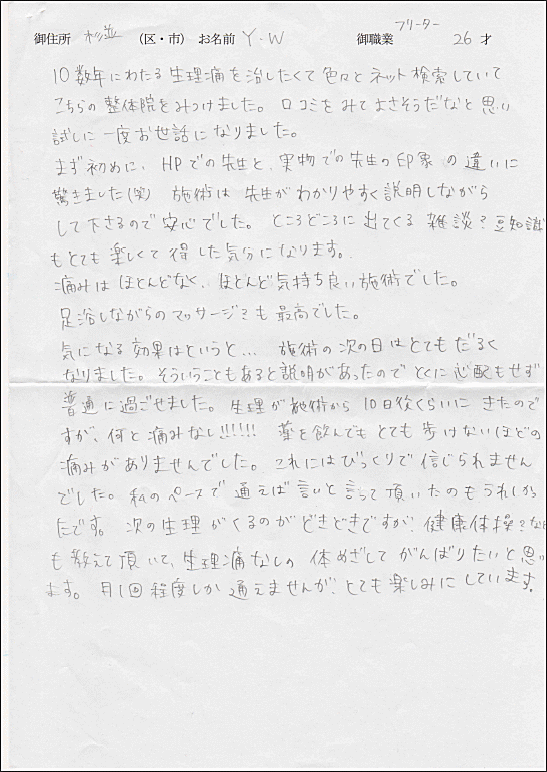 御住所 杉並 （区・市） お名前 Y・W 御職業 フリーター 26才
10数年にわたる生理痛を治したくて色々とネット検索していて
こちらの整体院をみつけました。口コミをみてよさそうだなと思い
試しに一度お世話になりました。
まず初めに、HPでの先生と、実物での先生の印象の違いに
驚きました(笑) 施術は先生がわかりやすく説明しながら
して下さるので安心でした。ところどころに出てくる雑談？豆知識
もとても楽しくて得した気分になります。
痛みはほとんどなく、ほとんど気持ち良い施術でした。
足浴しながらのマッサージも最高でした。
気になる効果はというと… 施術の次の日はとてもだるく
なりました。そういうこともあると説明があったのでとくに心配もせず
普通に過ごせました。生理が施術から10日後くらいにきたので
すが、何と痛みなし!!!!!! 薬を飲んでもとても歩けないほどの
痛みがありませんでした。これにはびっくりで信じられません
でした。私のペースで通えば言いと言って頂いたのもうれしかっ
たです。次の生理がくるのがどきどきですが、健康体操？など
も教えて頂いて、生理痛なしの体めざしてがんばりたいと思い
ます。月1回程度しか通えませんが、とても楽しみにしています。